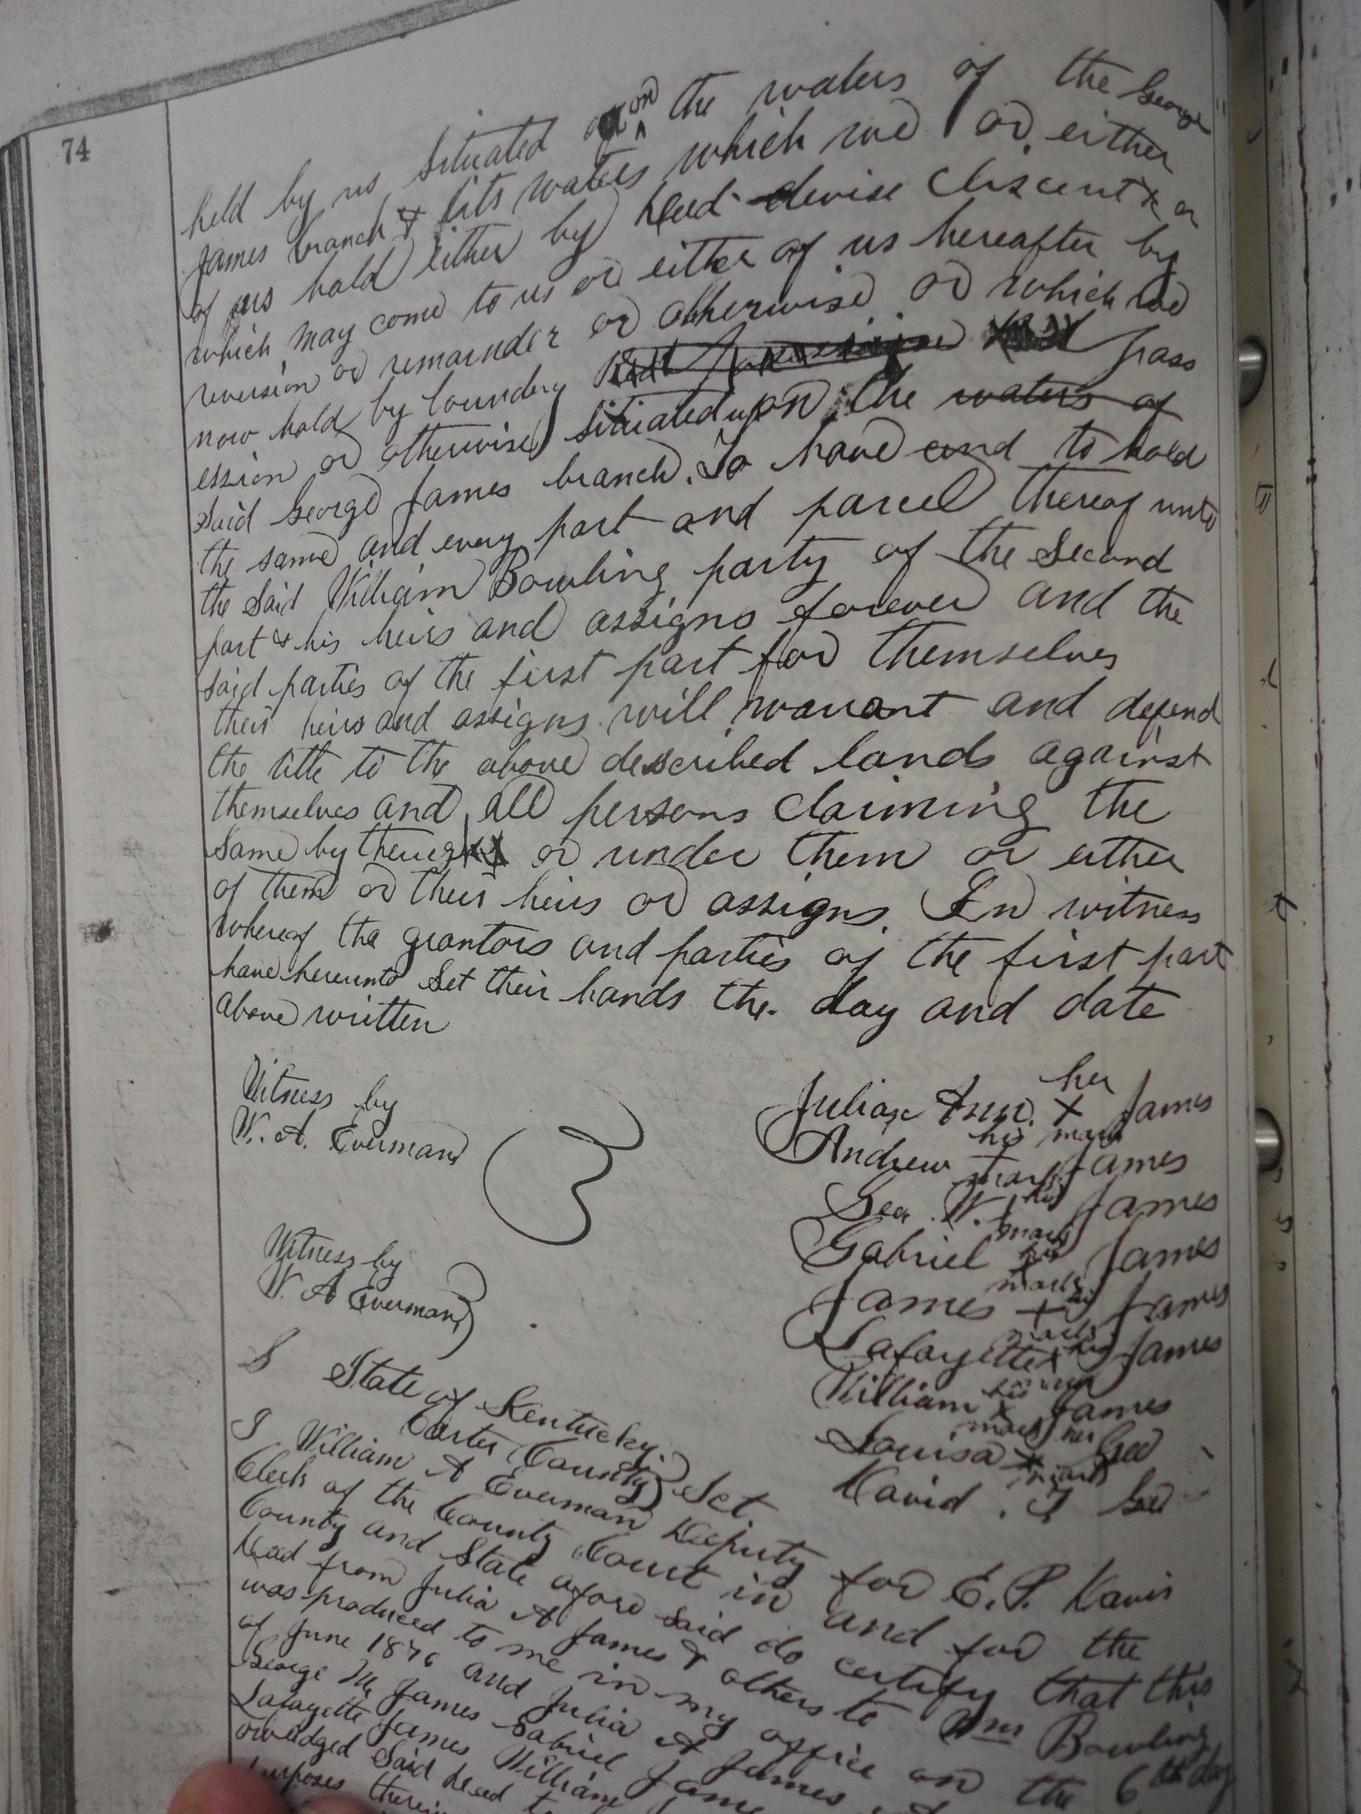 74
held by us situated on the waters of the George
James branch & its waters which we or either
of us hold either by deed devise discent or
which may come to us or either of us hereafter by
reversion or remainder or otherwise or which we
now hold by boundery poss
ession or otherwise situated upon the waters of
said George James branch. To have and to hold
the same and every part and parcel thereof unto
the Said William Bowling party of the Second
part & his heirs and assigns forever and the
said parties of the first part for themselves
their heirs and assigns will warrant and defend
the title to the above described lands against
themselves and all persons claiming the
Same by or under them or either
of them or their heirs or assigns. In witness
whereof the grantors and parties of the first part
have hereunto Set their hands the day and date
above written
Witness by
W. A. Everman
Witness by
W. A Everman
her
Julia Ann. X James
his mark
Andrew James
mark his
Geo. W. James
mark
Gabriel his James
mark
James + his James
mark
Lafayette x his James
William his James
x
mark her
Louisa x Gee
mark
David . J Gee
S State of Kentucky
Carter County Sct.
I William A Everman Deputy for E. P. Davis
Clerk of the County Court in and for the
County and State afore said do certify that this
Deed from Julia A James & others to Wm Bowling
was produced to me in my office on the 6th day
of June 1876 and Julia A James
George M James Gabriel James
Lafayette James William
owledged Said deed to
purposes therein